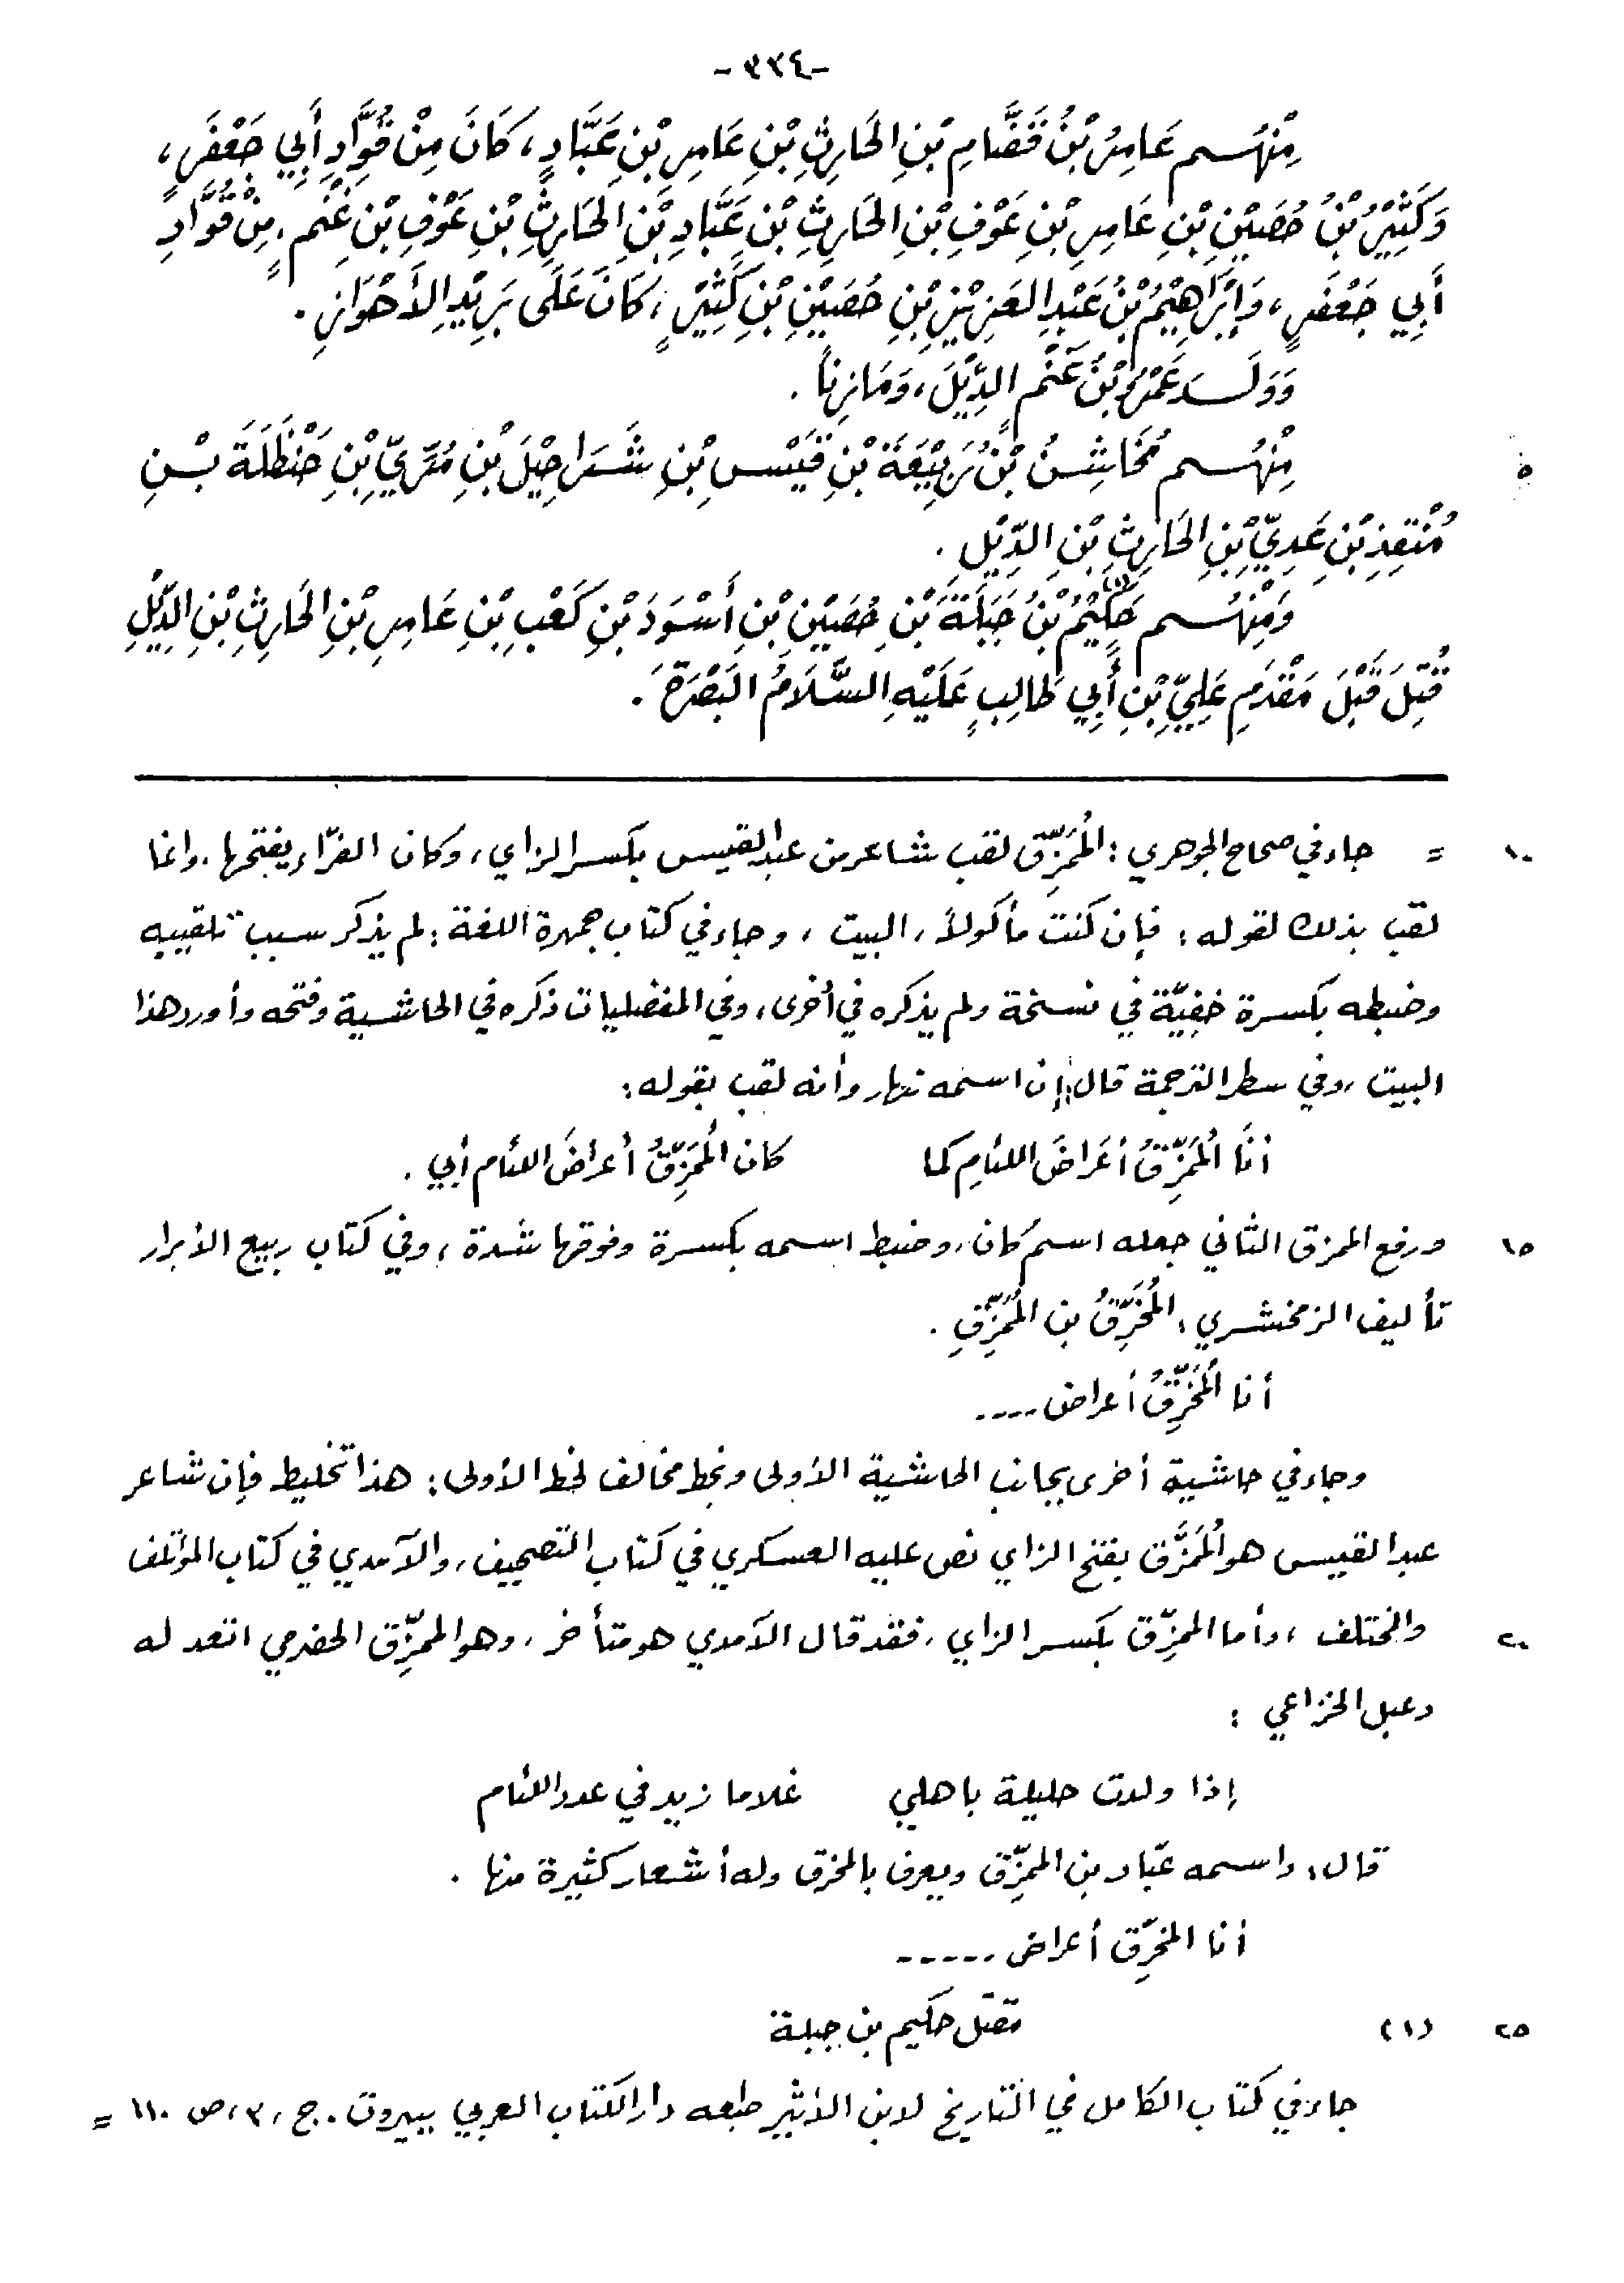 -٣٣٤-
مِنْهُم عَامِرُ بْنُ قَضَّامِ بْنِ الحَارِثِ بْنِ عَامِرِ بْنِ عَبَّادٍ، كَانَ مِنْ قُوَّادِ أَبِي جَعْفَرٍ،
وَكَثِيْرُ بْنُ حُصَيْنِ بْنِ عَامِرِ بْنِ عَوْفِ بْنِ الحَارِثِ بْنِ عَبَّادِ بْنِ الحَارِثِ بْنِ عَوْفِ بْنِ غَنْمٍ، مِنْ قُوَّادِ
أَبِي جَعْفَرٍ، وَإِبْرَاهِيْمُ بْنُ عَبْدِ العَزِيْزِ بْنِ حُصَيْنِ بْنِ كَثِيْرٍ، كَانَ عَلَى بَرِيْدِ الأَهْوَازِ.
وَوَلَدَ عَمْرُو بْنُ غَنْمٍ الدِّيْلَ، وَمَازِناً.
٥ مِنْهُم مُخَاشِنُ بْنُ رَبِيْعَةَ بْنِ قَيْسِ بْنِ شَرَاحِيْلَ بْنِ مُرِّيِّ بْنِ حَنْظَلَةَ بْنِ
مُنْقِذِ بْنِ عَدِيِّ بْنِ الحَارِثِ بْنِ الدِّيْلِ.
وَمِنْهُم حَكِيْمُ (١) بْنُ جَبَلَةَ بْنِ حُصَيْنِ بْنِ أَسْوَدَ بْنِ كَعْبِ بْنِ عَامِرِ بْنِ الحَارِثِ بْنِ الدِّيْلِ
قُتِلَ قَبْلَ مَقْدَمِ عَلِيِّ بْنِ أَبِي طَالِبٍ عَلَيْهِ السَّلَامُ البَصْرَةَ.
١٠ = جاء في صحاح الجوهري: المُمَزِّق لقب شاعر من عبد القيس بكسر الزاي، وكان الفرّاء يفتحها، وانما
لقب بذلك لقوله: فإن كنت مأكولاً، البيت، وجاء في كتاب جمهرة اللغة: لم يذكر سبب تلقيبه
وضبطه بكسرة خفِيَّة في نسخة ولم يذكره في أخرى، وفي المفضليات ذكره في الحاشية وفتحه وأورد هذا
البيت، وفي سطر الترجمة قال: إن اسمه نهار وأنه لقب بقوله:
أنَا المُمَزِّقُ أعْرَاضَ اللئامِ كما كان المُمَزِّقُ أعراضَ اللئام أبي.
١٥ ورفع الممزق الثاني جعله اسم كان، وضبط اسمه بكسرة وفوقها شدة، وفي كتاب ربيع الأبرار
تأليف الزمخشري، المُخَرِّقُ بن المُمَزِّقِ.
أنا المُخَرِّقُ أعراض ....
وجاء في حاشية أخرى بجانب الحاشية الأولى وبخط مخالف لخط الأولى: هذا تخليط فإن شاعر
عبد القيس هو المُمَزَّق بفتح الزاي نص عليه العسكري في كتاب التصحيف، والآمدي في كتاب المؤتلف
٢٠ والمختلف، وأما الممزِّق بكسر الزاي، فقد قال الآمدي هو متأخر، وهو الممزِّق الحضرمي انتعد له
دعبل الخزاعي:
إذا ولدت حليلة باهلي غلاما زيد في عدد اللئام
قال: واسمه عبّاد بن الممزِّق ويعرف بالمخرق وله أشعار كثيرة منها.
أنا المخرِّق أعراض .....
٢٥ (١) مقتل حكيم بن جبلة
جاء في كتاب الكامل في التاريخ لابن الأثير طبعه دار الكتاب العربي ببيروت. ج، ٣، ص ١١٠ =